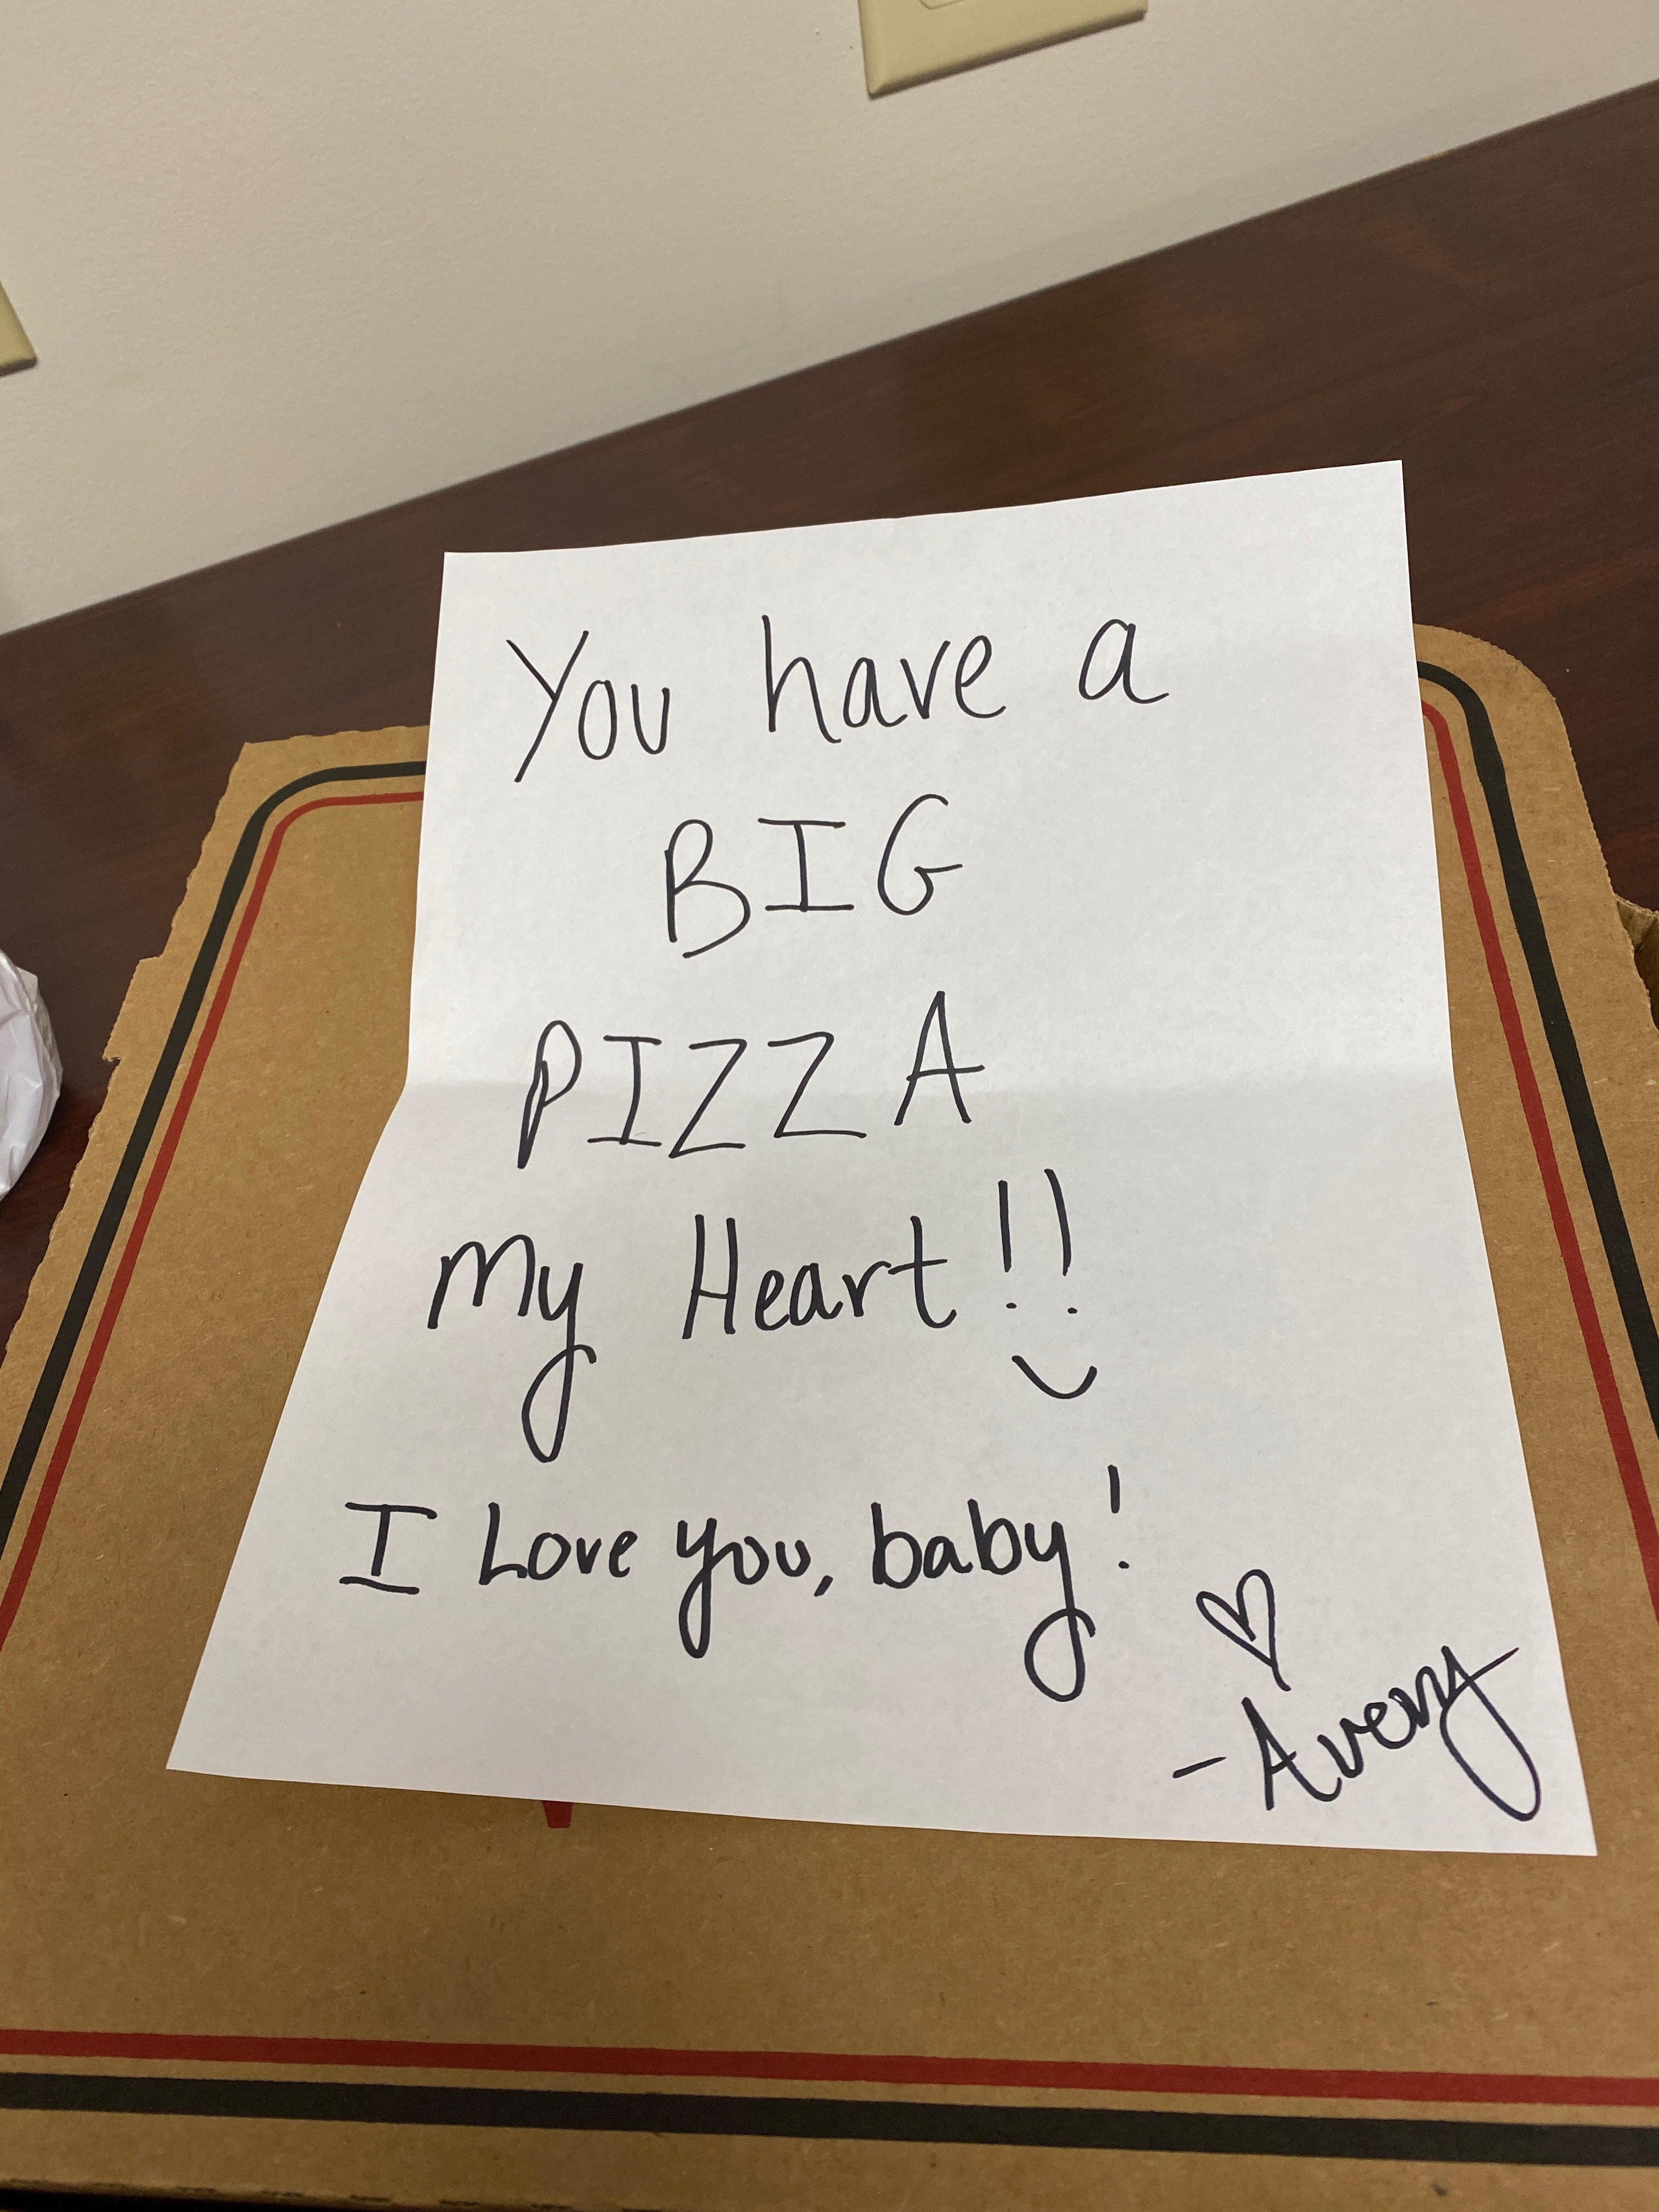 You have a
BIG
PIZZA
My Heart!!
I Love you, baby!
♡
-Avery